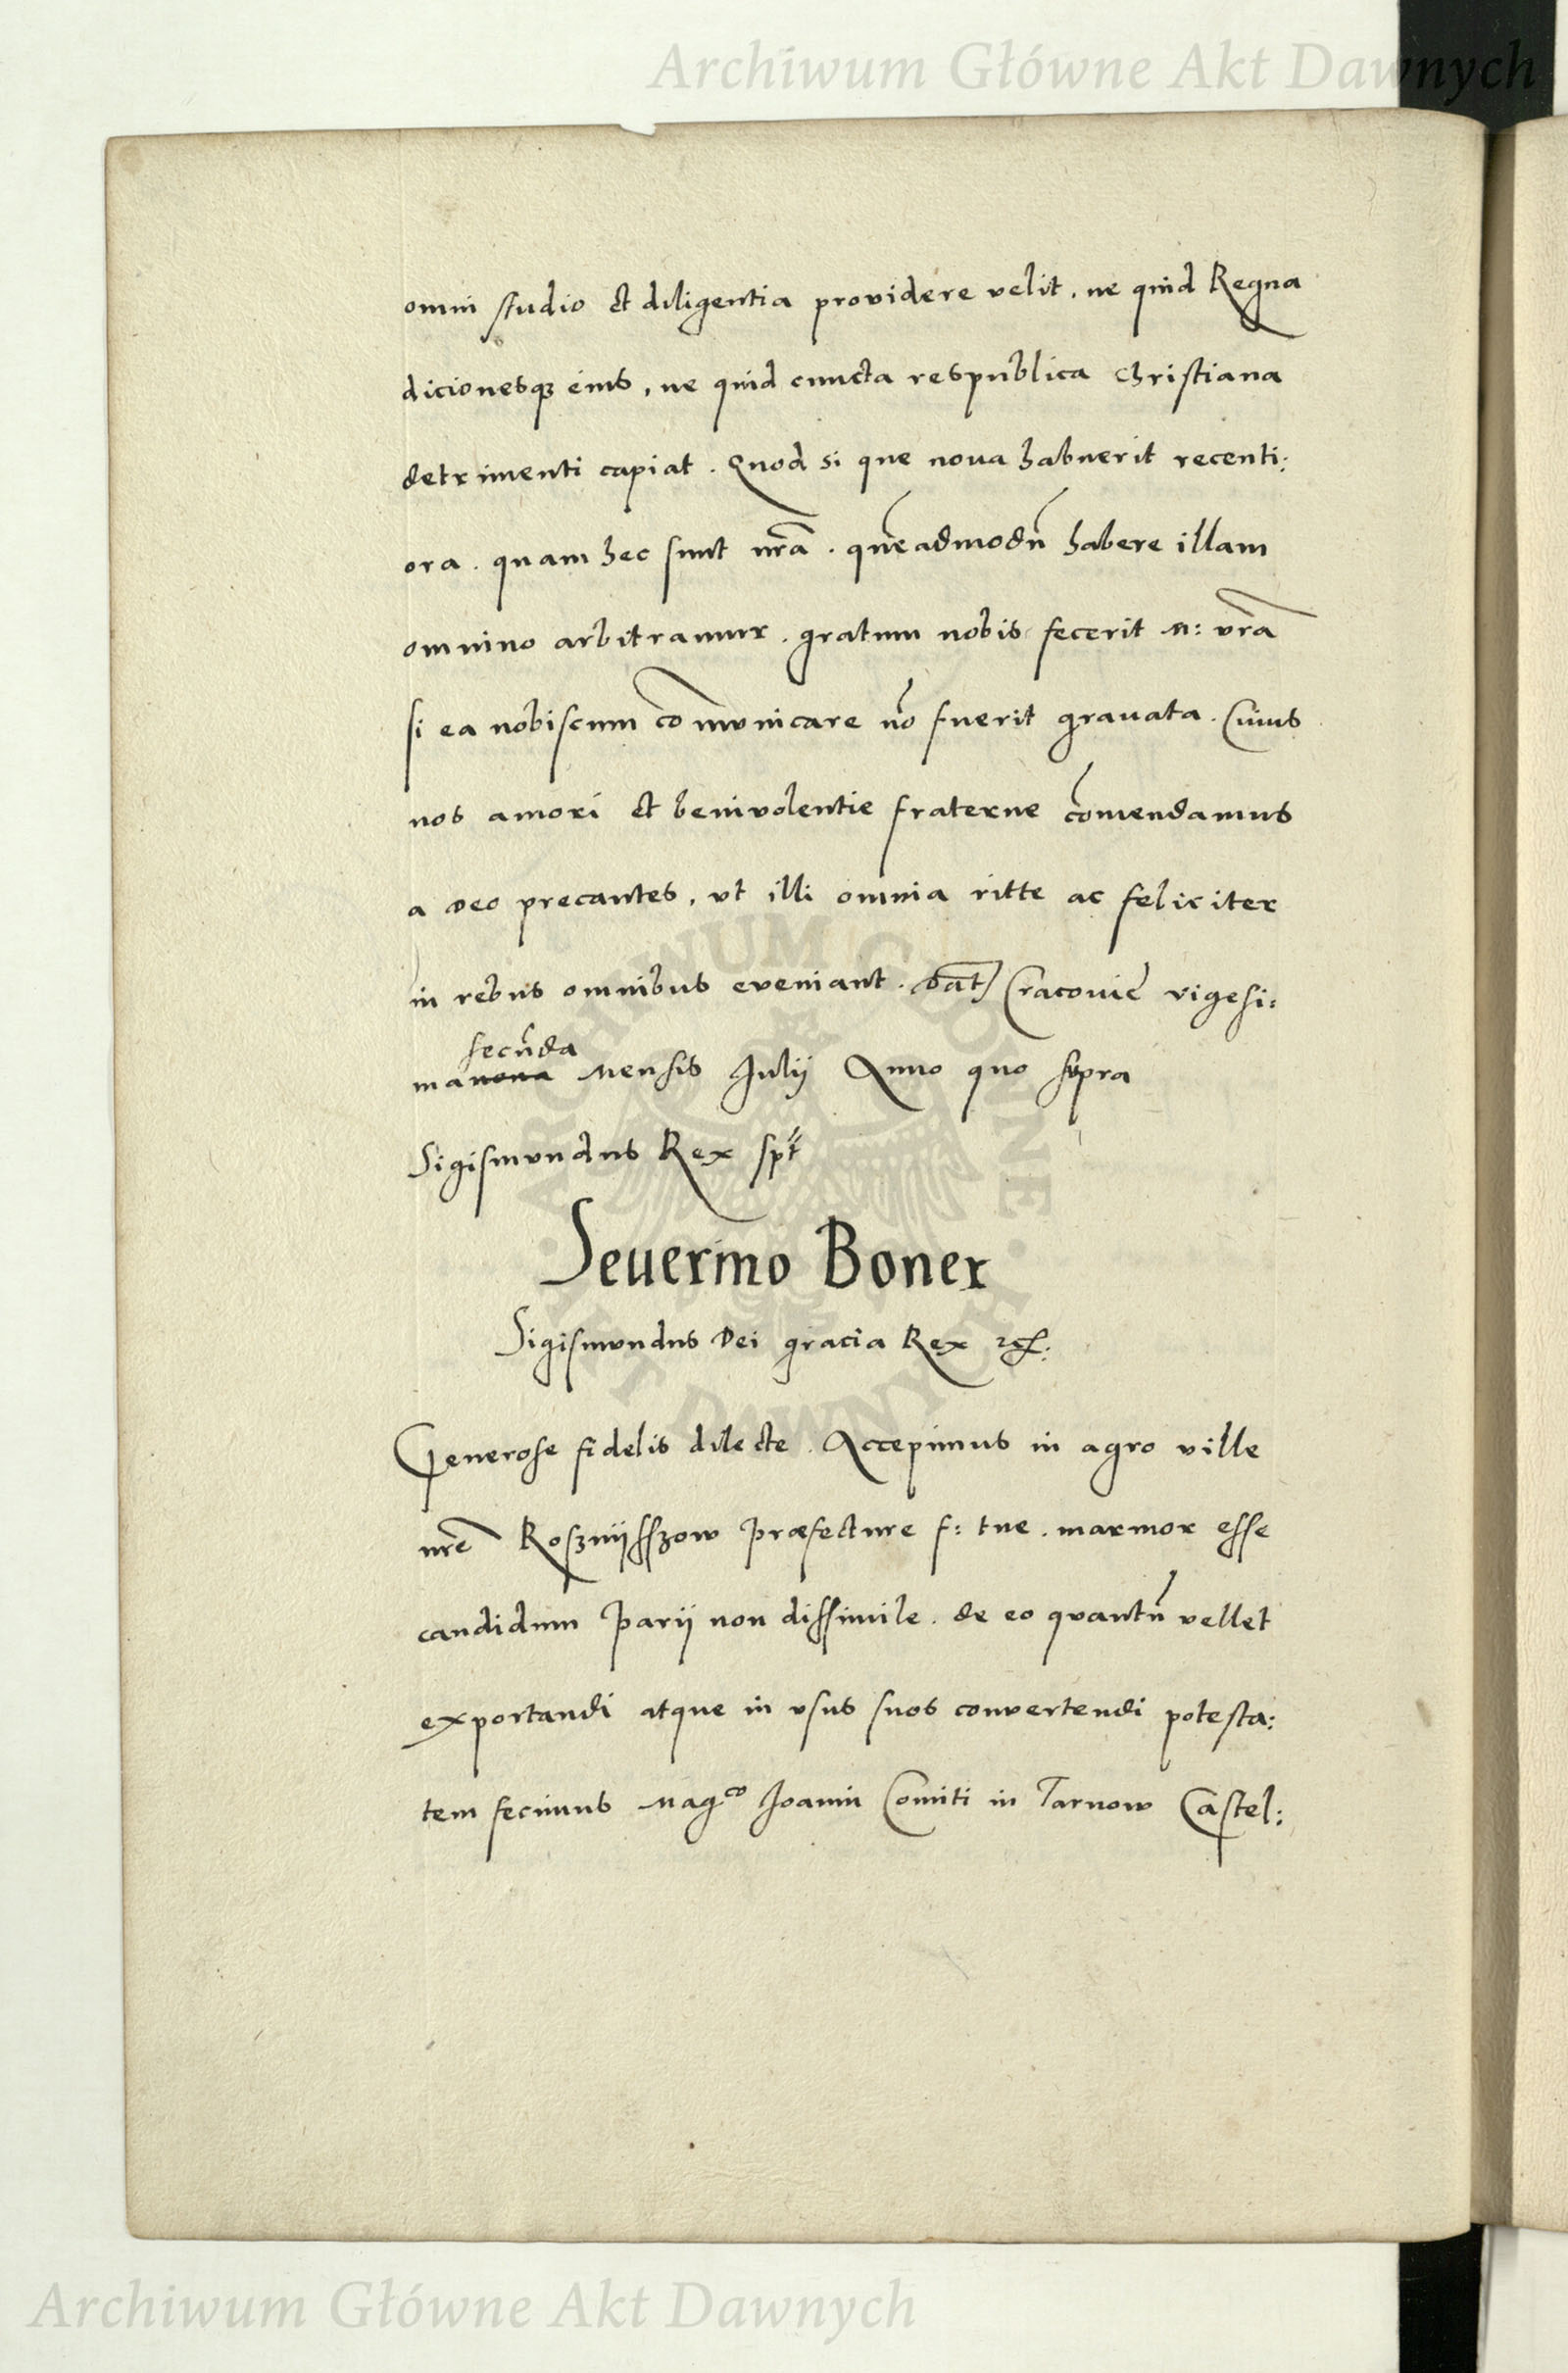 Archiwum Główne Akt Dawnych
omni studio et diligentia providere velit, ne quid Regna
dicionesqꝫ eius, ne quid cuncta respublica Christiana
detrimenti capiat. Quod si que noua habuerit recenti:
ora. quam hec sunt nrã. quẽadmodũ habere illam
omnino arbitramur. gratum nobis fecerit M: vrã
si ea nobiscum cõmunicare nõ fuerit grauata. Cuius
nos amori et benivolentie fraterne cõmendamus
a deo precantes, vt illi omnia ritte ac feliciter
in rebus omnibus eveniant. Dat Cracouie vigesi:
secũda
manona Mensis Julij Anno quo supra
Sigismundus Rex spt
Seuerino Boner
Sigismundus Dei gracia Rex etc:
Generose fidelis dilecte. Accepimus in agro ville
nrẽ Roſznijſſzow Præfecture f: tue. marmor esse
candidum Parij non dissimile. de eo quantũ vellet
exportandi atque in vsus suos convertendi potesta:
tem fecimus Mag^co Joanni Comiti in Tarnow Castel:
ARCHIWUM GŁÓWNE
AKT DAWNYCH
Archiwum Główne Akt Dawnych